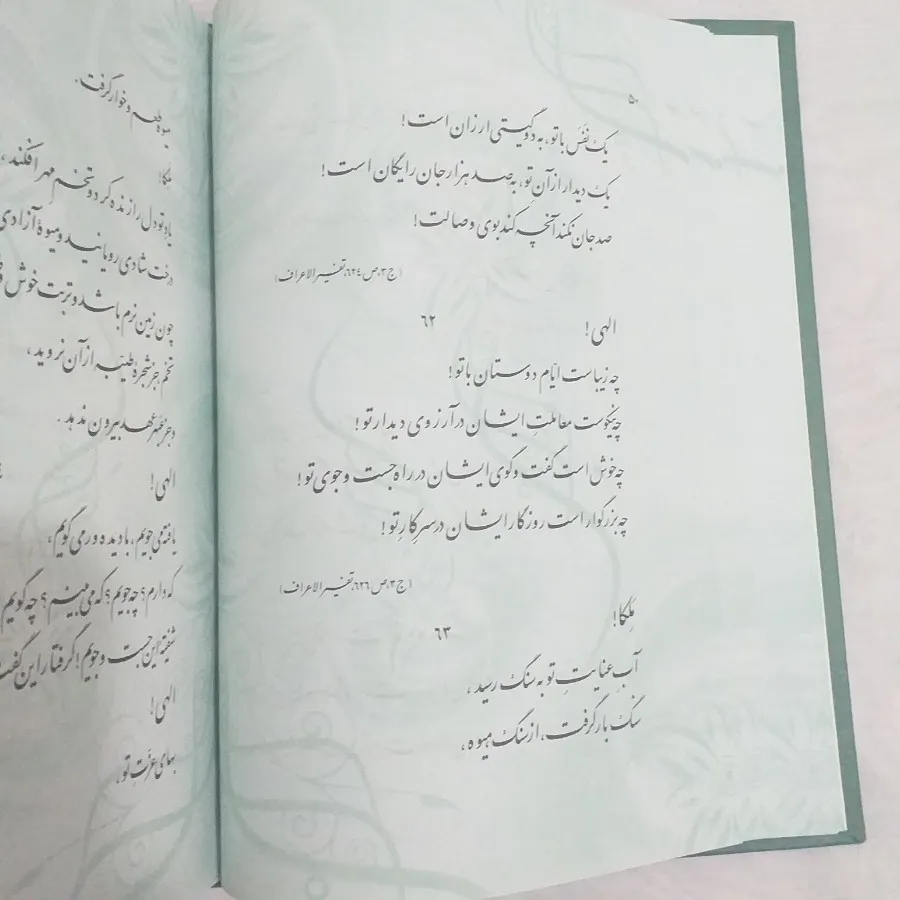 ۵۰
یک نفَس با تو، به دو گیتی ارزان است!
یک دیدار از آنِ تو، به صد هزار جان رایگان است!
صد جان نکند آنچه کند بوی وصالت!
(ج۳، ص ٦٢٤، تفسیر الاعراف)
٦٢
الهی!
چه زیباست ایّام دوستان با تو!
چه نیکوست معاملتِ ایشان در آرزوی دیدار تو!
چه خوش است گفت و گوی ایشان در راه جست و جوی تو!
چه بزرگوار است روزگار ایشان در سرِ کارِ تو!
(ج۳، ص ٦٢٦، تفسیر الاعراف)
٦٣
مَلِکا!
آبِ عنایتِ تو به سنگ رسید،
سنگ بار گرفت، از سنگ میوه،
میوه طعم و خوار گرفت.
ملکا!
یاد تو دل را زنده کرد و تخمِ مهر افکند،
درخت شادی رویانید و میوهٔ آزادی
چون زمین نرم باشد و تربت خوش
تخم جز شجرهٔ طیّبه از آن نروید،
و جز عبهر عهد بیرون ندهد.
الهی!
یافته می‌جویم، با دیده‌ور می‌گویم،
که دارم؟ چه جویم؟ که می‌بینم؟ چه گویم
شیفتهٔ این جست و جویم! گرفتار این گفت
الهی!
بهای عزّتِ تو،